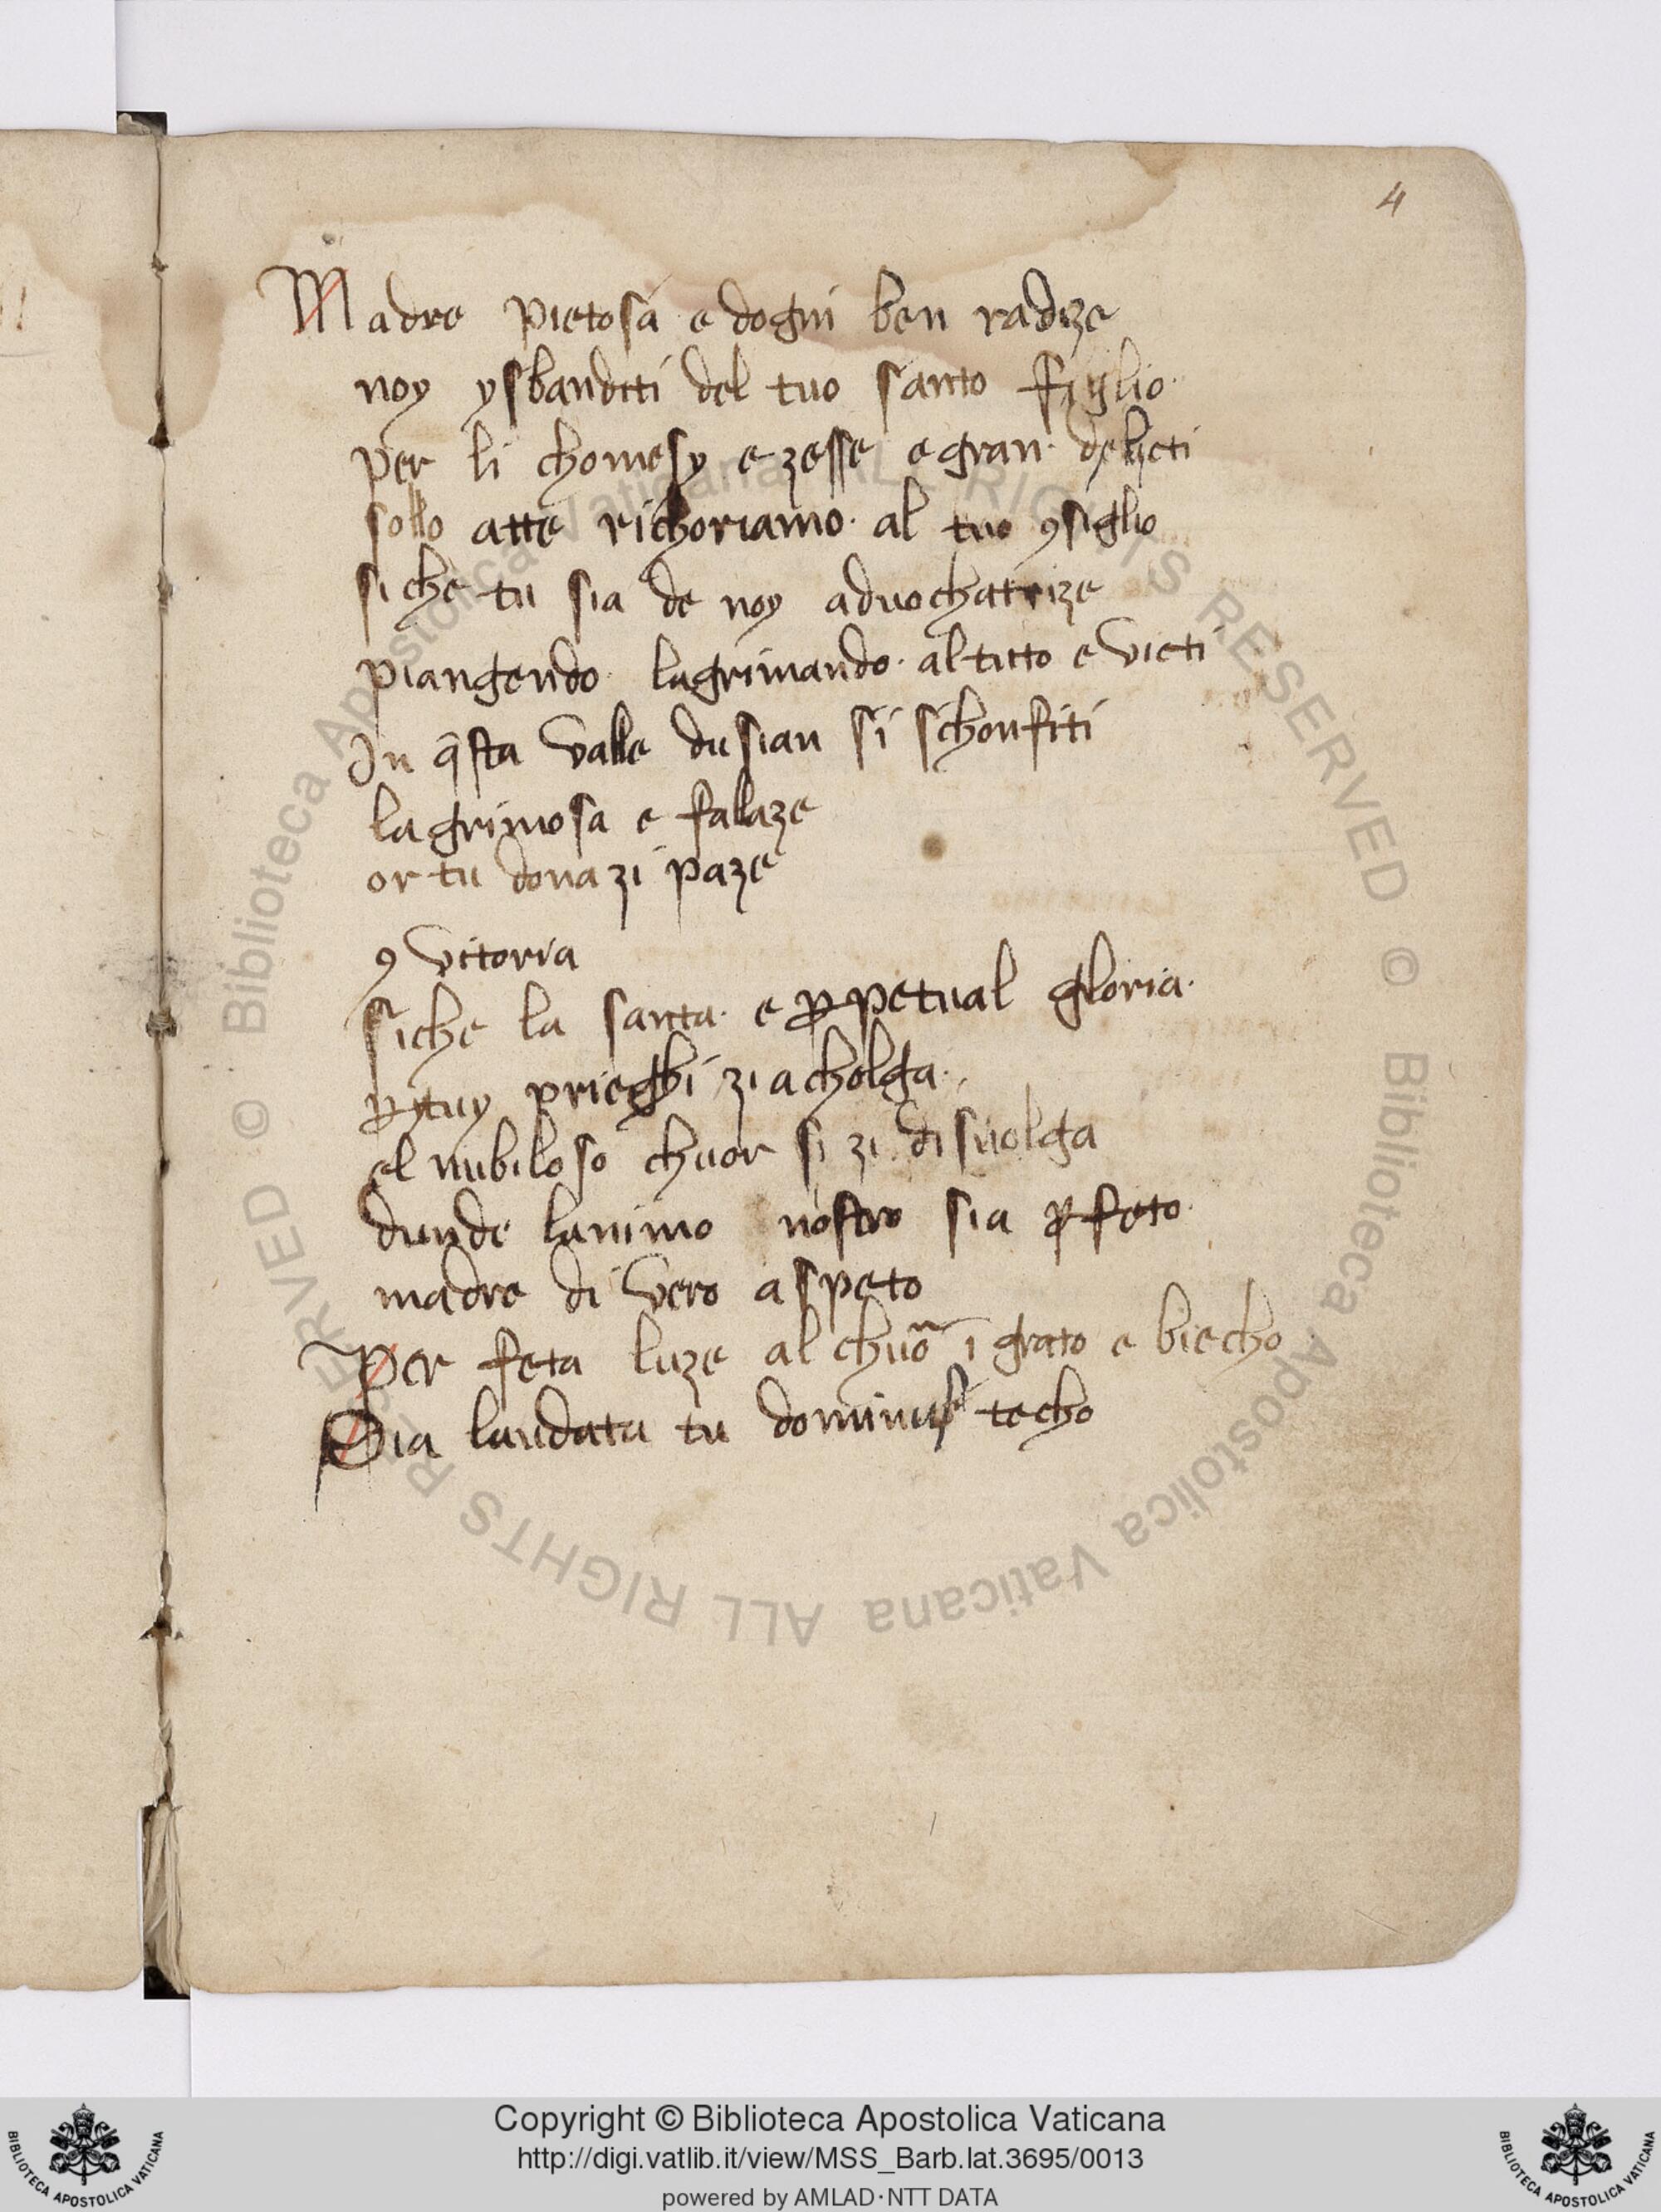 4
Madre pietosa e dogni ben radize
noy ysbanditi del tuo santo figlio
per li chomesy ezesse e gran delicti
sollo atte richoriamo al tuo ꝯsiglio
si che tu sia de noy aduochatrize
piangendo lagrimando altitto e victi
In q̄sta valle du sian si schonfiti
lagrimosa e fallaze
or tu donazi paze
ꝯ vitoria
siche la santa e ꝑpetual gloria
prieghi zi acholga
el nubiloso chuor si zi disuolga
dunde lanimo nostro sia ꝑfeto
madre di vero aspeto
Per feta luze al chuõ ĩ grato e biecho
Sia laudata tu dominus techo
© Biblioteca Apostolica Vaticana ALL RIGHTS RESERVED © Biblioteca Apostolica Vaticana ALL RIGHTS RESERVED
Copyright © Biblioteca Apostolica Vaticana
http://digi.vatlib.it/view/MSS_Barb.lat.3695/0013
powered by AMLAD·NTT DATA
BIBLIOTECA APOSTOLICA VATICANA
BIBLIOTECA APOSTOLICA VATICANA